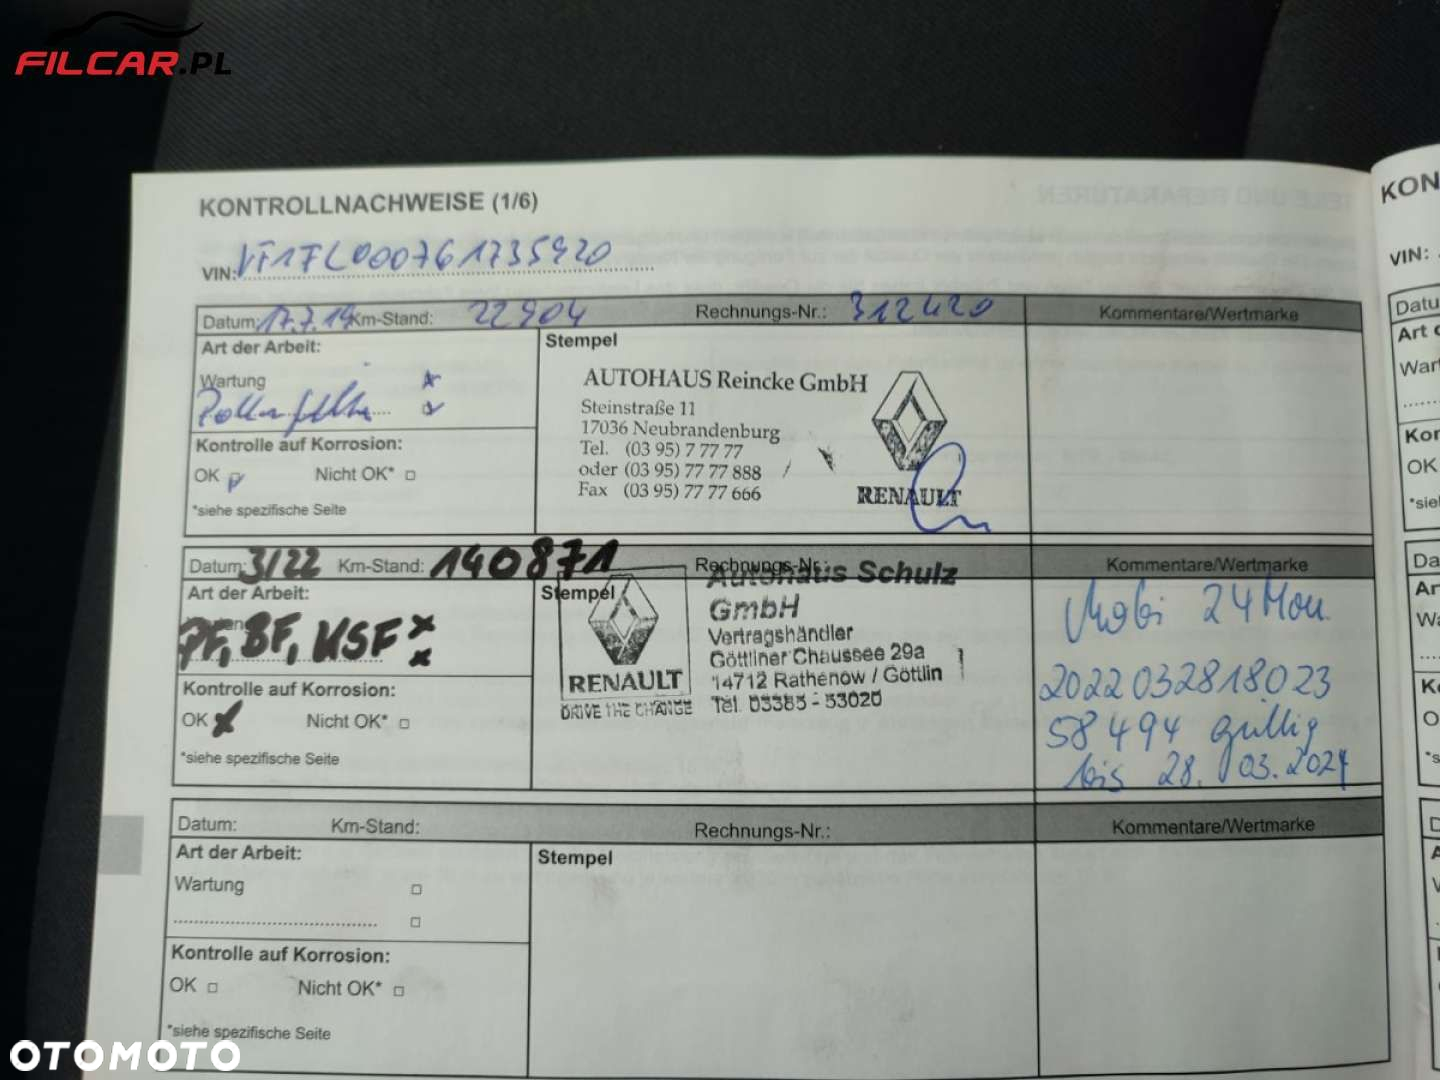 FILCAR.PL
KONTROLLNACHWEISE (1/6)
VIN: VF1FL000761735920
Datum: 17.7.19 Km-Stand: 22904 Rechnungs-Nr.: 312420 Kommentare/Wertmarke
Art der Arbeit:
Wartung
Pollenfilter
Kontrolle auf Korrosion:
OK Nicht OK*
*siehe spezifische Seite
Stempel
AUTOHAUS Reincke GmbH
Steinstraße 11
17036 Neubrandenburg
Tel. (03 95) 7 77 77
oder (03 95) 77 77 888
Fax (03 95) 77 77 666
RENAULT
Datum: 3/22 Km-Stand: 140871 Rechnungs-Nr.: Kommentare/Wertmarke
Art der Arbeit:
PF, BF, KSF
Kontrolle auf Korrosion:
OK Nicht OK*
*siehe spezifische Seite
Stempel
RENAULT
DRIVE THE CHANGE
Autohaus Schulz
GmbH
Vertragshändler
Göttliner Chaussee 29a
14712 Rathenow / Göttlin
Tel. 03385 - 53020
Mobi 24 Mon
2022032818023
58494 gültig
bis 28.03.2024
Datum: Km-Stand: Rechnungs-Nr.: Kommentare/Wertmarke
Art der Arbeit:
Wartung
Kontrolle auf Korrosion:
OK Nicht OK*
*siehe spezifische Seite
Stempel
KON
VIN:
Datu
Art
War
Kor
OK
*sie
Da
Ar
Wa
OTOMOTO